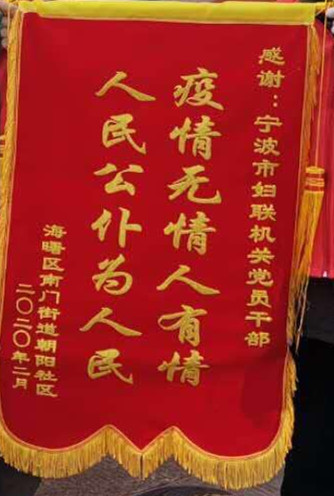 感谢：宁波市妇联机关党员干部
疫情无情人有情
人民公仆为人民
海曙区南门街道朝阳社区
二〇二〇年二月